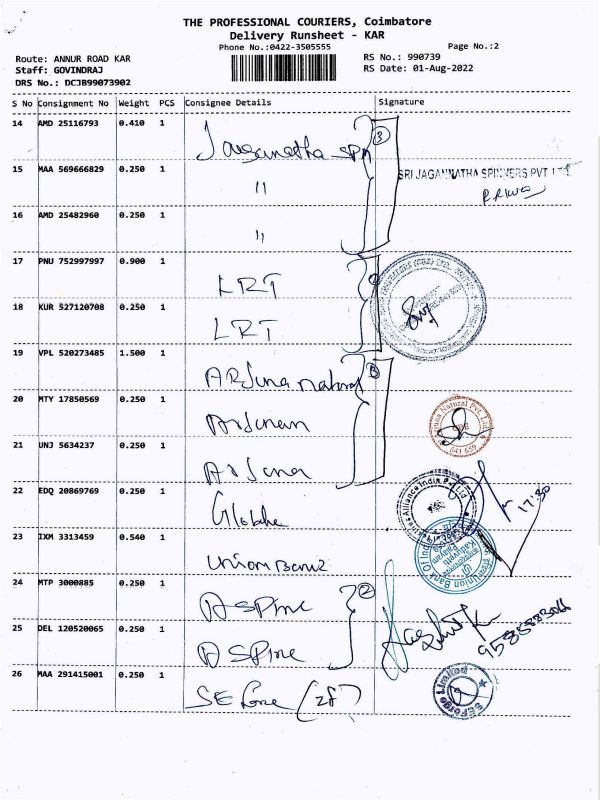 THE PROFESSIONAL COURIERS, Coimbatore
Delivery Runsheet - KAR
Phone No.:0422-3505555
Page No.:2
Route: ANNUR ROAD KAR
RS No.: 990739
Staff: GOVINDRAJ
RS Date: 01-Aug-2022
DRS No.: DCJB99073902
S No Consignment No Weight PCS Consignee Details Signature
14 AMD 25116793 0.410 1 Jaganatha SPN 3
15 MAA 569666829 0.250 1 "
SRI JAGANNATHA SPINNERS PVT LTD
16 AMD 25482960 0.250 1 "
17 PNU 752997997 0.900 1 LRT
18 KUR 527120708 0.250 1 LRT
19 VPL 520273485 1.500 1 Arjuna Natural 3
20 MTY 17850569 0.250 1
Natural Pvt. Ltd.
641 659
21 UNJ 5634237 0.250 1 Arjuna
22 EDQ 20869769 0.250 1
Alliance India Pvt Ltd
17:30
23 IXM 3313459 0.540 1 Union Bank
Union Bank Of India
24 MTP 3000885 0.250 1 2
25 DEL 120520065 0.250 1
26 MAA 291415001 0.250 1 SE Forge (28)
SE Forge Limited